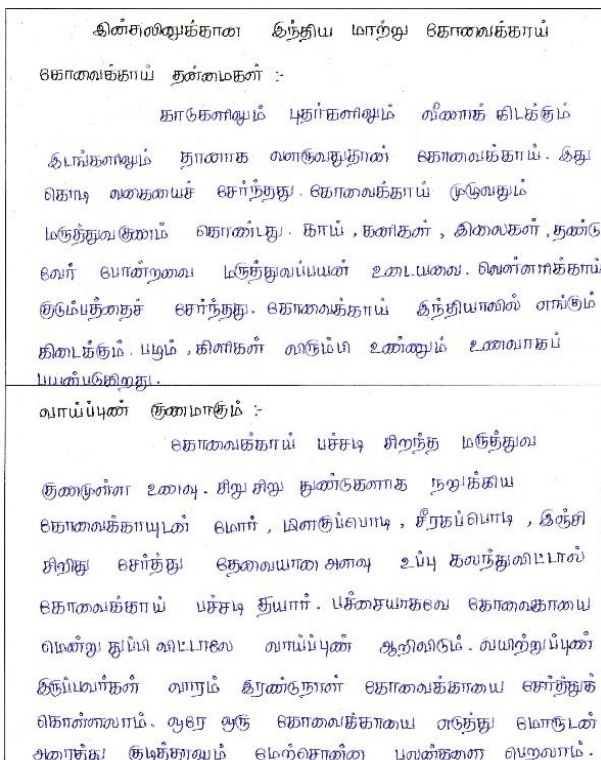 இன்சுலினுக்கான இந்திய மாற்று கோவைக்காய்
கோவைக்காய் தன்மைகள் :-
காடுகளிலும் புதர்களிலும் வீணாக கிடக்கும்
இடங்களிலும் தானாக வளருவதுதான் கோவைக்காய். இது
கொடி வகையைச் சேர்ந்தது. கோவைக்காய் முழுவதும்
மருத்துவகுணம் கொண்டது. காய், கனிகள், இலைகள், தண்டு
வேர் போன்றவை மருத்துவப்பயன் உடையவை. வெள்ளரிக்காய்
குடும்பத்தைச் சேர்ந்தது. கோவைக்காய் இந்தியாவில் எங்கும்
கிடைக்கும். பழம், கிளிகள் விரும்பி உண்ணும் உணவாகப்
பயன்படுகிறது.
வாய்ப்புண் குணமாகும் :-
கோவைக்காய் பச்சடி சிறந்த மருத்துவ
குணமுள்ள உணவு. சிறு சிறு துண்டுகளாக நறுக்கிய
கோவைக்காயுடன் மோர், மிளகுப்பொடி, சீரகப்பொடி, இஞ்சி
சிறிது சேர்த்து தேவையான அளவு உப்பு கலந்துவிட்டால்
கோவைக்காய் பச்சடி தயார். பச்சையாகவே கோவைகாயை
மென்று துப்பி விட்டாலே வாய்ப்புண் ஆறிவிடும். வயிற்றுப்புண்
இருப்பவர்கள் வாரம் இரண்டுநாள் கோவைக்காயை சேர்த்துக்
கொள்ளலாம். ஒரே ஒரு கோவைக்காயை எடுத்து மோருடன்
அரைத்து குடித்தாலும் மேற்சொன்ன பலன்களை பெறலாம்.